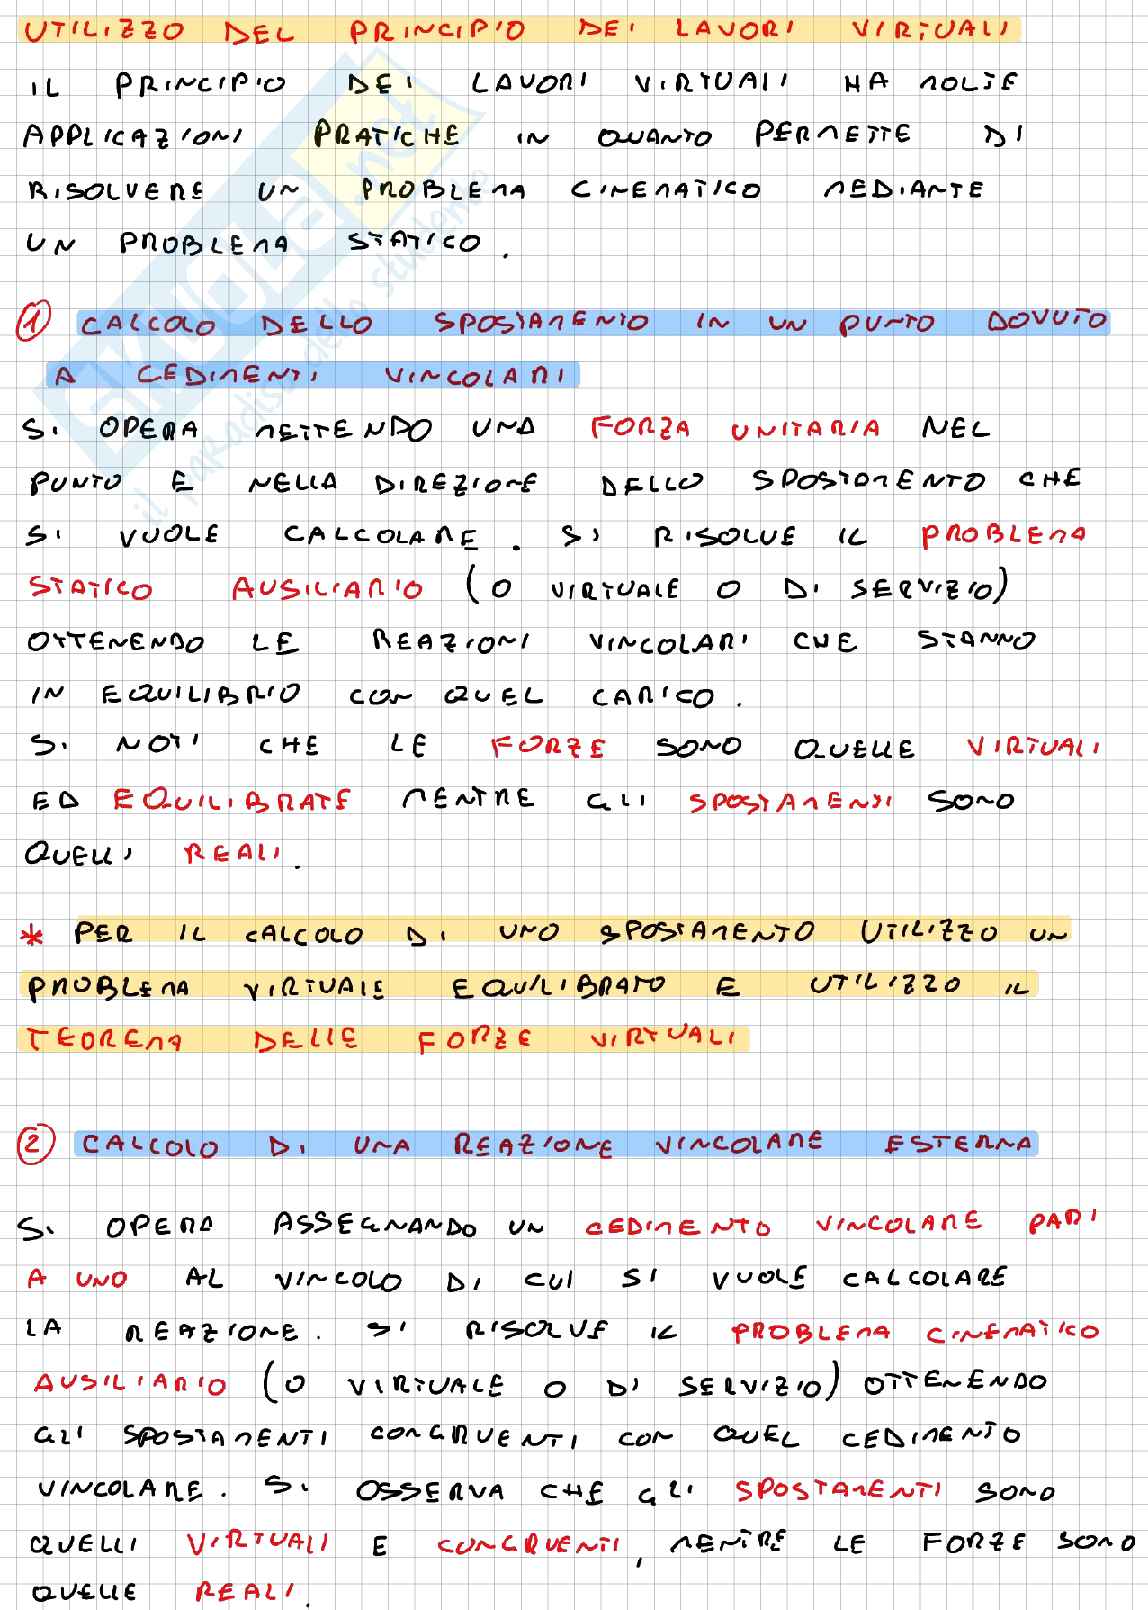 UTILIZZO DEL PRINCIPIO DEI LAVORI VIRTUALI
IL PRINCIPIO DEI LAVORI VIRTUALI HA MOLTE
APPLICAZIONI PRATICHE IN QUANTO PERMETTE DI
RISOLVERE UN PROBLEMA CINEMATICO MEDIANTE
UN PROBLEMA STATICO.
1 CALCOLO DELLO SPOSTAMENTO IN UN PUNTO DOVUTO
A CEDIMENTI VINCOLARI
SI OPERA METTENDO UNA FORZA UNITARIA NEL
PUNTO E NELLA DIREZIONE DELLO SPOSTAMENTO CHE
SI VUOLE CALCOLARE. SI RISOLVE IL PROBLEMA
STATICO AUSILIARIO (O VIRTUALE O DI SERVIZIO)
OTTENENDO LE REAZIONI VINCOLARI CHE STANNO
IN EQUILIBRIO CON QUEL CARICO.
SI NOTI CHE LE FORZE SONO QUELLE VIRTUALI
ED EQUILIBRATE MENTRE GLI SPOSTAMENTI SONO
QUELLI REALI.
* PER IL CALCOLO DI UNO SPOSTAMENTO UTILIZZO UN
PROBLEMA VIRTUALE EQUILIBRATO E UTILIZZO IL
TEOREMA DELLE FORZE VIRTUALI
2 CALCOLO DI UNA REAZIONE VINCOLARE ESTERNA
SI OPERA ASSEGNANDO UN CEDIMENTO VINCOLARE PARI
A UNO AL VINCOLO DI CUI SI VUOLE CALCOLARE
LA REAZIONE. SI RISOLVE IL PROBLEMA CINEMATICO
AUSILIARIO (O VIRTUALE O DI SERVIZIO) OTTENENDO
GLI SPOSTAMENTI CONGRUENTI CON QUEL CEDIMENTO
VINCOLARE. SI OSSERVA CHE GLI SPOSTAMENTI SONO
QUELLI VIRTUALI E CONGRUENTI, MENTRE LE FORZE SONO
QUELLE REALI.
SKUOLA.net
il paradiso dello studente